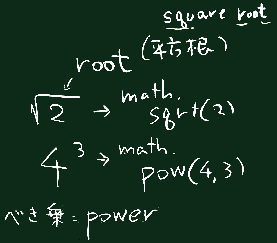 square root
root (平方根)
√2 → math.
sqrt(2)
4³ → math.
pow(4,3)
べき乗 = power